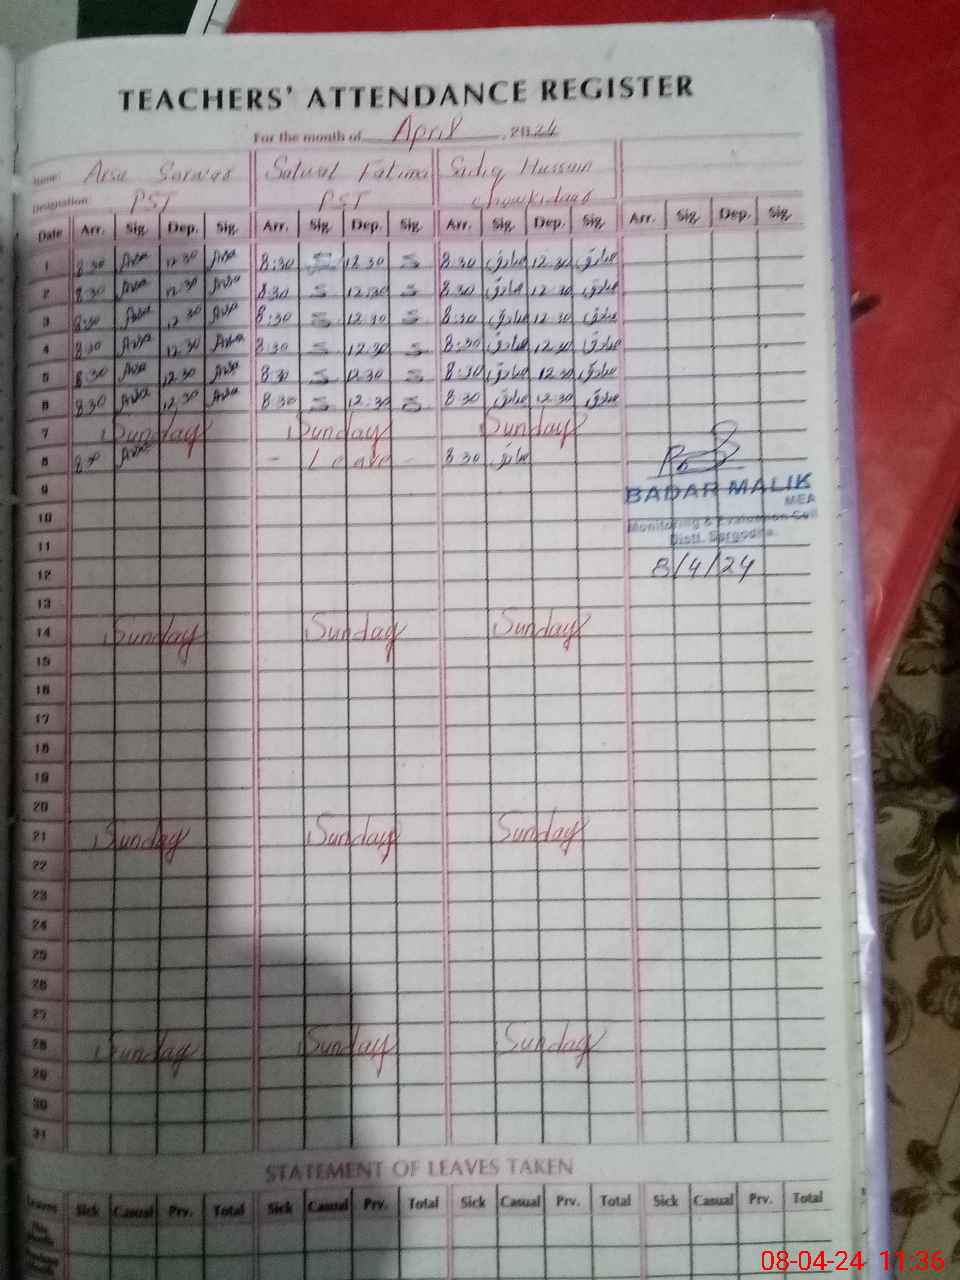 TEACHERS' ATTENDANCE REGISTER
For the month of April 2024
Name: Sarwar Fatima Sadiq Hussain
Designation: PST PST Chowkidar
Date Arr. Sig. Dep. Sig. Arr. Sig. Dep. Sig. Arr. Sig. Dep. Sig. Arr. Sig. Dep. Sig.
1 8:30 12:30 8:30 S 12:30 S 8:30 صادق 12:30 صادق
2 8:30 12:30 8:30 S 12:30 S 8:30 صادق 12:30 صادق
3 8:30 12:30 8:30 S 12:30 S 8:30 صادق 12:30 صادق
4 8:30 12:30 8:30 S 12:30 S 8:30 صادق 12:30 صادق
5 8:30 12:30 8:30 S 12:30 S 8:30 صادق 12:30 صادق
6 8:30 12:30 8:30 S 12:30 S 8:30 صادق 12:30 صادق
7 Sunday Sunday Sunday
8 - Leave - 8:30 صادق
9 BADAR MALIK
MEA
10 Monitoring & Evaluation Cell
Distt. Sargodha.
11
12 8/4/24
13
14 Sunday Sunday Sunday
15
16
17
18
19
20
21 Sunday Sunday Sunday
22
23
24
25
26
27
28 Sunday Sunday Sunday
29
30
31
STATEMENT OF LEAVES TAKEN
Leaves Sick Casual Prv. Total Sick Casual Prv. Total Sick Casual Prv. Total Sick Casual Prv. Total
08-04-24 11:36